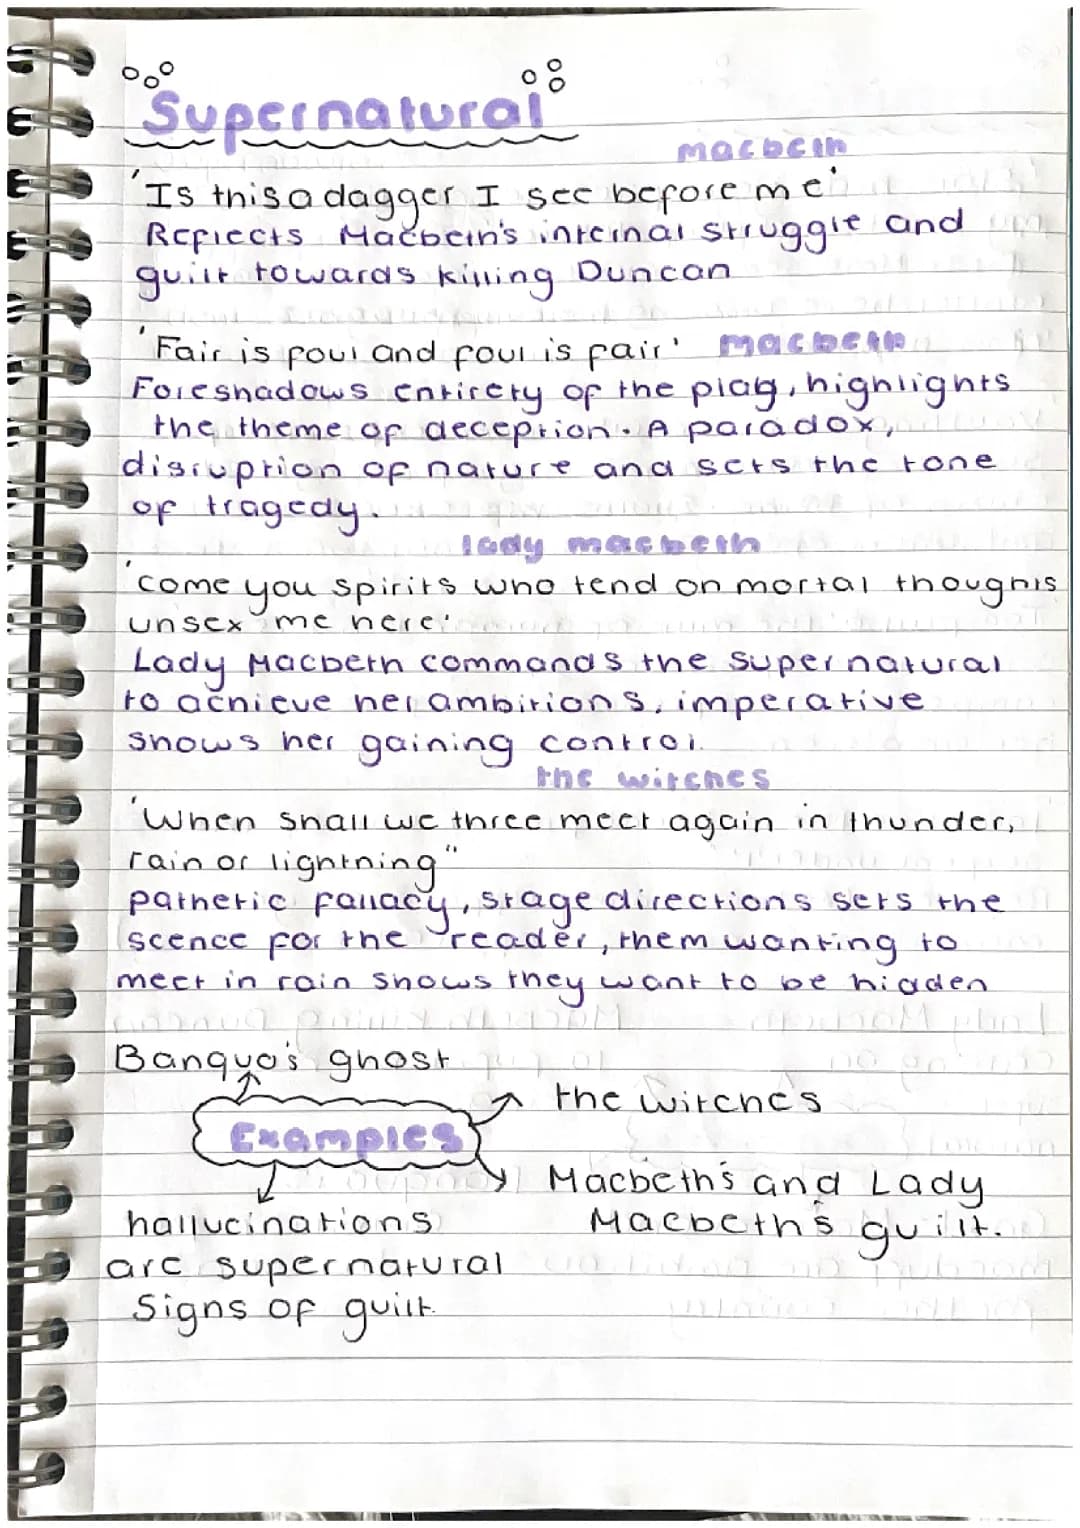 Supernatural
macbeth
'Is this a dagger I see before me'
Reflects Macbeth's internal struggle and
guilt towards killing Duncan
'Fair is foul and foul is fair' macbeth
Foreshadows entirety of the play, highlights
the theme of deception. A paradox,
disruption of nature and sets the tone
of tragedy.
lady macbeth
'come you spirits who tend on mortal thoughts
unsex me here'
Lady Macbeth commands the supernatural
to achieve her ambitions, imperative
shows her gaining control.
the witches
'When shall we three meet again in thunder,
rain or lightning"
pathetic fallacy, stage directions sets the
scence for the reader, them wanting to
meet in rain shows they want to be hidden
Banquo's ghost
the witches
Examples
Macbeth's and Lady
Macbeth's guilt.
hallucinations
are supernatural
signs of guilt.